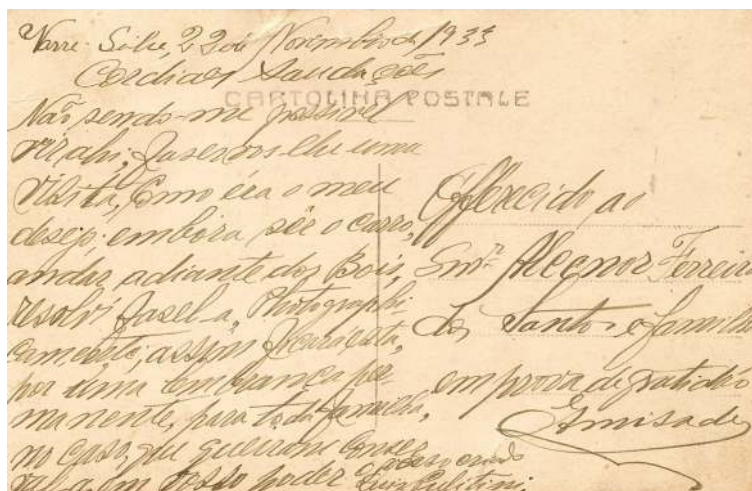 Varre-Sahe, 22 de Novembro de 1933
Cordiaes Saudações
CARTOLINA POSTALE
Não sendo-me possivel
vir ahi; faser vos uma
visita, como éra o meu
desejo, embora ser o carro,
andar adiante dos Bois,
resolvi fasel-a, Photographi-
camente; assim ficará esta,
por uma lembrança per-
manente, para toda familia,
no caso, que queiram conser
val-a, em vosso poder
Offerecido ao
Snr. Ferreira
dos Santos e familia
em prova de gratidão
e Amisade